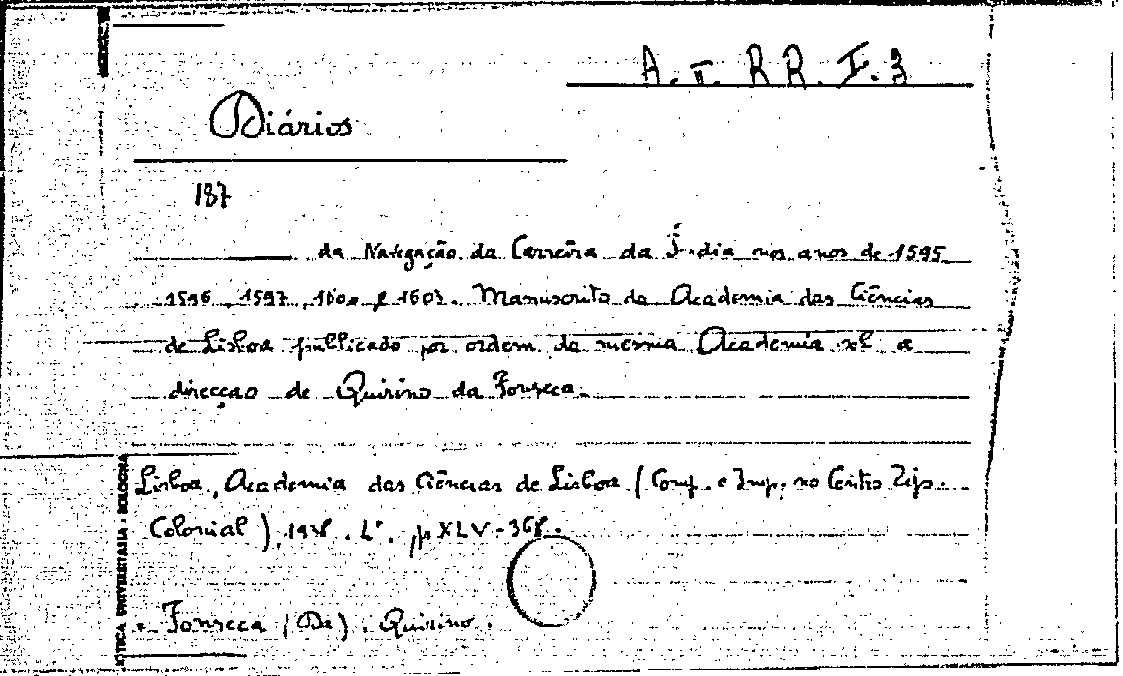 A. V. RR. I. 3
Diários
187
da Navegação da Carreira da Índia nos anos de 1595
1596, 1597, 1600 e 1603. Manuscrito da Academia das Ciências
de Lisboa publicado por ordem da mesma Academia sob a
direcçao de Quirino da Fonseca.
Lisboa, Academia das Ciências de Lisboa (Comp. e Imp. no Centro Tip.
Colonial), 1938. p XLV-368.
Fonseca (Da). Quirino.
UNIVERSITARIA - BOLOGNA